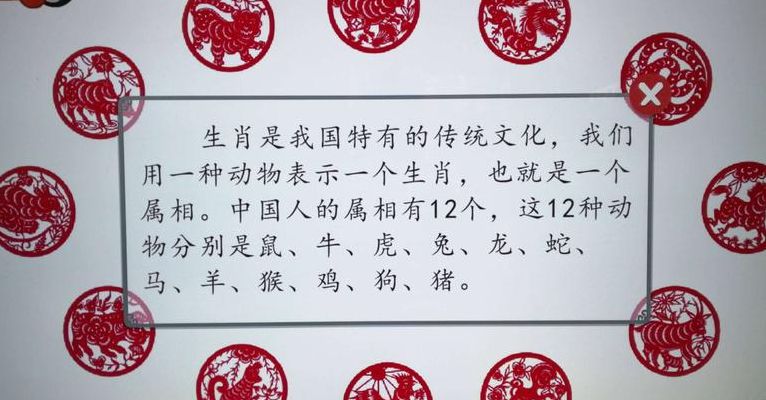 生肖是我国特有的传统文化，我们
用一种动物表示一个生肖，也就是一个
属相。中国人的属相有12个，这12种动
物分别是鼠、牛、虎、兔、龙、蛇、
马、羊、猴、鸡、狗、猪。